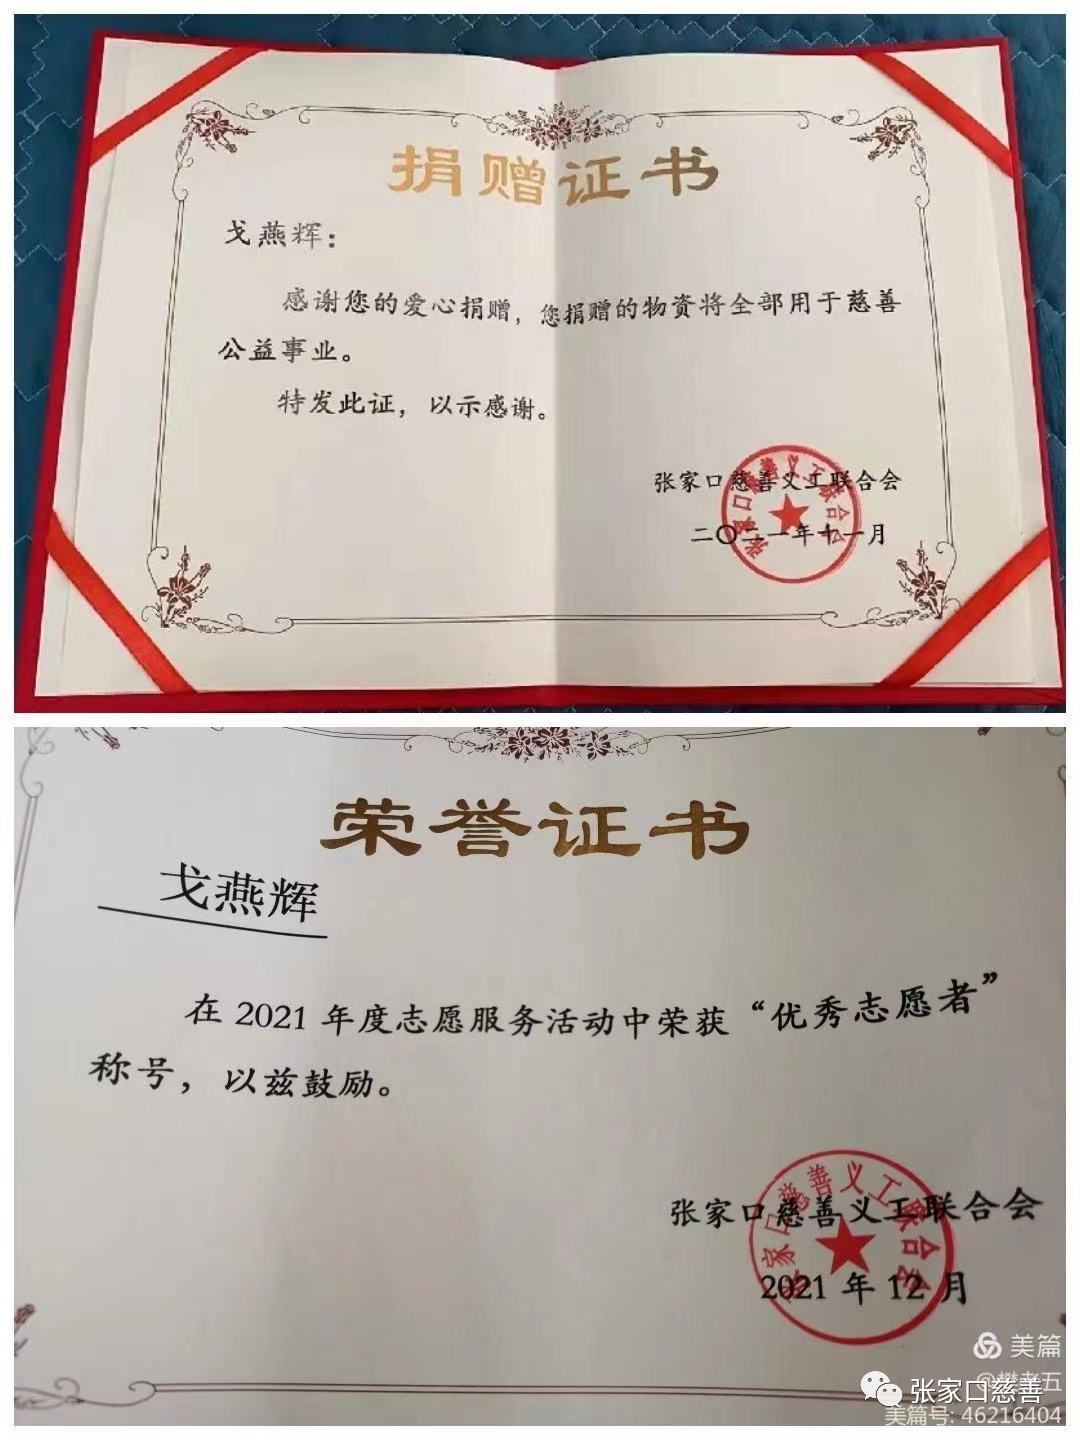 捐赠证书
戈燕辉：
感谢您的爱心捐赠，您捐赠的物资将全部用于慈善
公益事业。
特发此证，以示感谢。
张家口慈善义工联合会
二〇二一年十一月
张家口慈善义工联合会
荣誉证书
戈燕辉
在 2021 年度志愿服务活动中荣获“优秀志愿者”
称号，以兹鼓励。
张家口慈善义工联合会
2021 年 12 月
张家口慈善义工联合会
美篇
@樊老五
张家口慈善
美篇号: 46216404